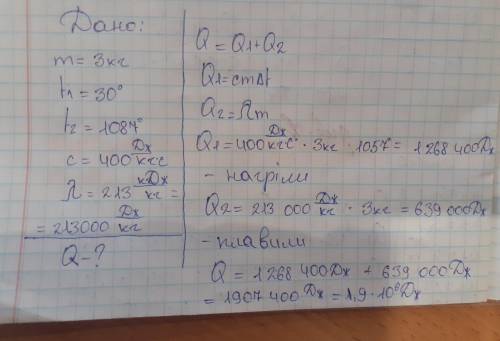 Дано:
m = 3кг
t₁ = 30°
t₂ = 1087°
c = 400 Дж/кгс
λ = 213 кДж/кг =
= 213000 Дж/кг
Q-?
Q = Q₁ + Q₂
Q₁ = cmΔt
Q₂ = λm
Q₁ = 400 Дж/кгс° · 3кг · 1057° = 1 268 400 Дж
- нагріли
Q₂ = 213 000 Дж/кг · 3кг = 639 000 Дж
- плавили
Q = 1 268 400 Дж + 639 000 Дж
= 1907 400 Дж = 1,9 · 10⁶ Дж